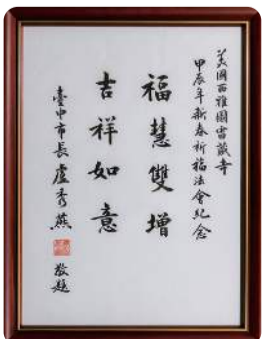 美國西雅圖雷藏寺
甲辰年新春祈福法會紀念
福慧雙增
吉祥如意
臺中市長盧秀燕
敬題